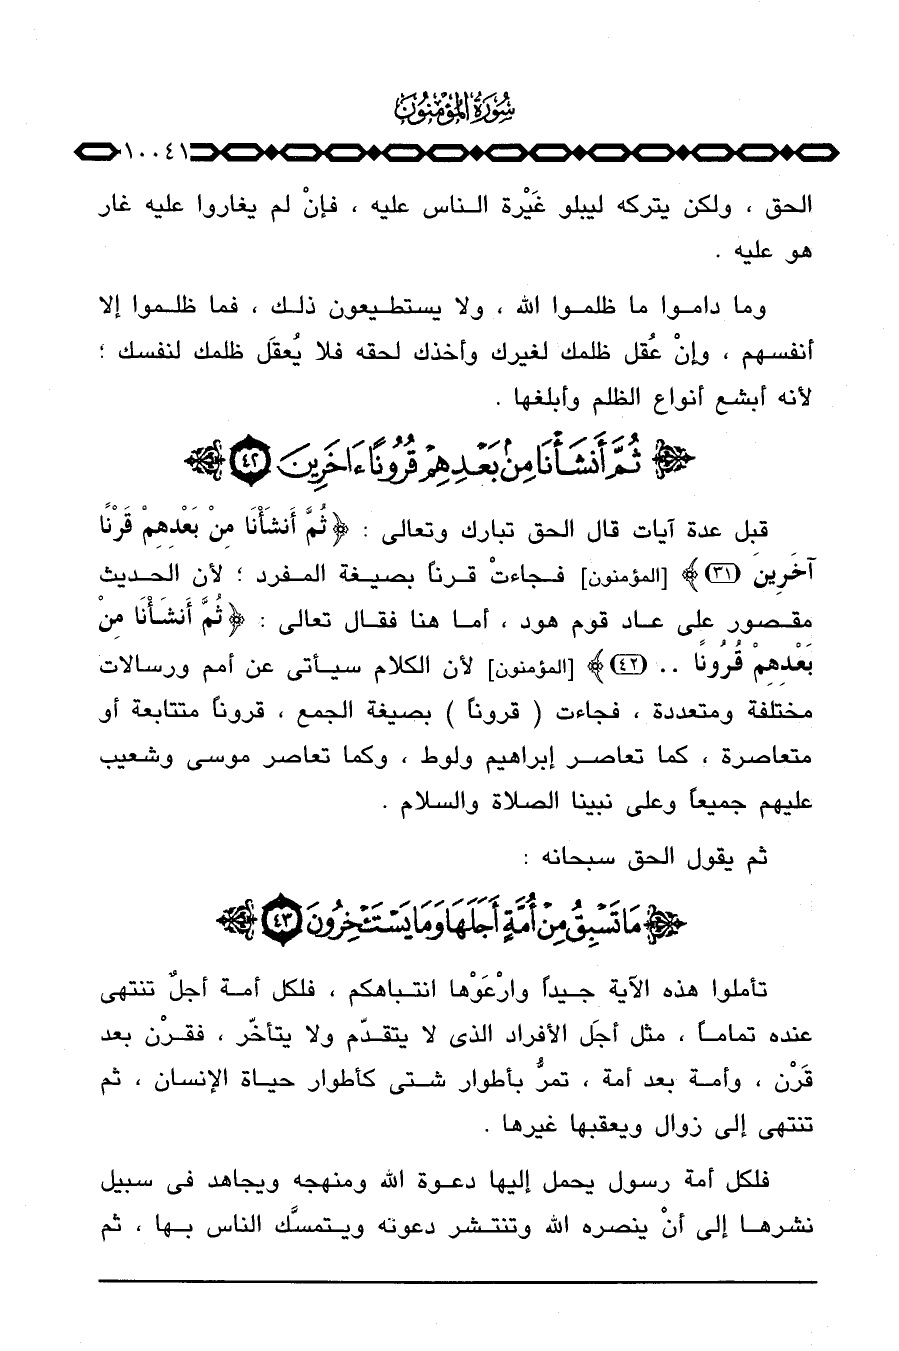 سُورَةُ المُؤْمِنُونَ
١٠٠٤١
الحق ، ولكن يتركه ليبلو غَيْرة الناس عليه ، فإنْ لم يغاروا عليه غار
هو عليه .
وما داموا ما ظلموا الله ، ولا يستطيعون ذلك ، فما ظلموا إلا
أنفسهم ، وإنْ عُقل ظلمك لغيرك وأخذك لحقه فلا يُعقَل ظلمك لنفسك ؛
لأنه أبشع أنواع الظلم وأبلغها .
﴿ ثُمَّ أَنشَأْنَا مِنۢ بَعْدِهِمْ قُرُونًا ءَاخَرِينَ ٤٢ ﴾
قبل عدة آيات قال الحق تبارك وتعالى : ﴿ ثُمَّ أَنشَأْنَا مِنْ بَعْدِهِمْ قَرْنًا
آخَرِينَ (٣١) ﴾ [المؤمنون] فجاءتْ قرناً بصيغة المفرد ؛ لأن الحديث
مقصور على عاد قوم هود ، أما هنا فقال تعالى : ﴿ ثُمَّ أَنشَأْنَا مِنْ
بَعْدِهِمْ قُرُونًا .. (٤٢) ﴾ [المؤمنون] لأن الكلام سيأتى عن أمم ورسالات
مختلفة ومتعددة ، فجاءت ( قروناً ) بصيغة الجمع ، قروناً متتابعة أو
متعاصرة ، كما تعاصر إبراهيم ولوط ، وكما تعاصر موسى وشعيب
عليهم جميعاً وعلى نبينا الصلاة والسلام .
ثم يقول الحق سبحانه :
﴿ مَا تَسْبِقُ مِنْ أُمَّةٍ أَجَلَهَا وَمَا يَسْتَـْٔخِرُونَ ٤٣ ﴾
تأملوا هذه الآية جيداً وارْعَوْها انتباهكم ، فلكل أمة أجلٌ تنتهى
عنده تماماً ، مثل أجَل الأفراد الذى لا يتقدّم ولا يتأخّر ، فقرْن بعد
قَرْن ، وأمة بعد أمة ، تمرُّ بأطوار شتى كأطوار حياة الإنسان ، ثم
تنتهى إلى زوال ويعقبها غيرها .
فلكل أمة رسول يحمل إليها دعوة الله ومنهجه ويجاهد فى سبيل
نشرها إلى أنْ ينصره الله وتنتشر دعوته ويتمسَّك الناس بها ، ثم